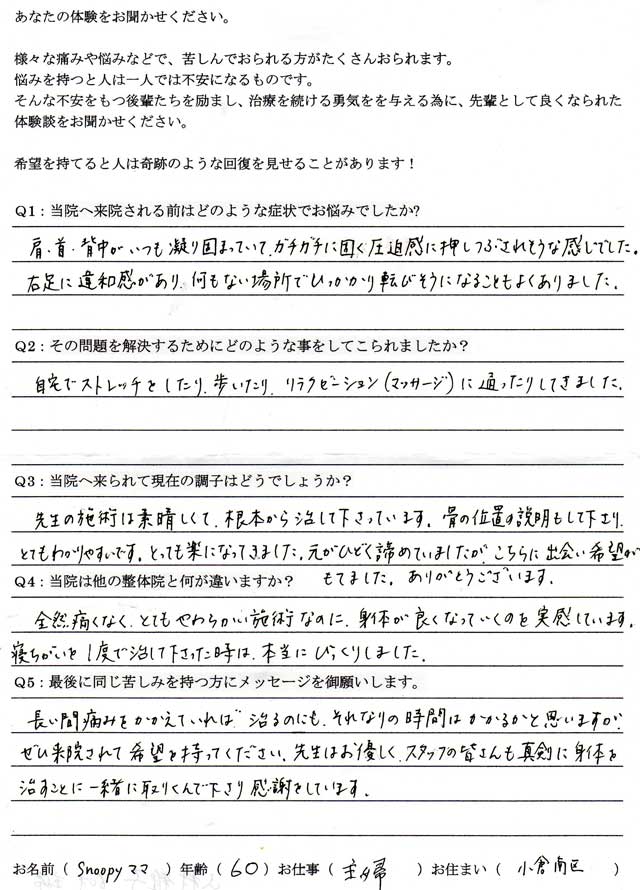 あなたの体験をお聞かせください。
様々な痛みや悩みなどで、苦しんでおられる方がたくさんおられます。
悩みを持つと人は一人では不安になるものです。
そんな不安をもつ後輩たちを励まし、治療を続ける勇気をを与える為に、先輩として良くなられた
体験談をお聞かせください。
希望を持てると人は奇跡のような回復を見せることがあります！
Q1：当院へ来院される前はどのような症状でお悩みでしたか?
肩、首、背中がいつも凝り固まっていて、ガチガチに固く圧迫感に押しつぶされそうな感じでした。
右足に違和感があり、何もない場所でひっかかり転びそうになることもよくありました。
Q2：その問題を解決するためにどのような事をしてこられましたか？
自宅でストレッチをしたり、歩いたり、リラクゼーション（マッサージ）に通ったりしてきました。
Q3：当院へ来られて現在の調子はどうでしょうか？
先生の施術は素晴しくて、根本から治して下さっています。骨の位置の説明もして下さり、
とてもわかりやすいです。とっても楽になってきました。元がひどく諦めていましたが、こちらに出会い希望が
もてました。ありがとうございます。
Q4：当院は他の整体院と何が違いますか？
全然痛くなく、とてもやわらかい施術なのに、身体が良くなっていくのを実感しています。
寝ちがいを1度で治して下さった時は、本当にびっくりしました。
Q5：最後に同じ苦しみを持つ方にメッセージを御願いします。
長い間痛みをかかえていれば治るのにも、それなりの時間はかかるかと思いますが、
ぜひ来院されて希望を持ってください。先生はお優しく、スタッフの皆さんも真剣に身体を
治すことに一緒に取りくんで下さり感謝をしています。
お名前（ Snoopyママ ）年齢（ 60 ）お仕事（ 主婦 ）お住まい（ 小倉南区 ）